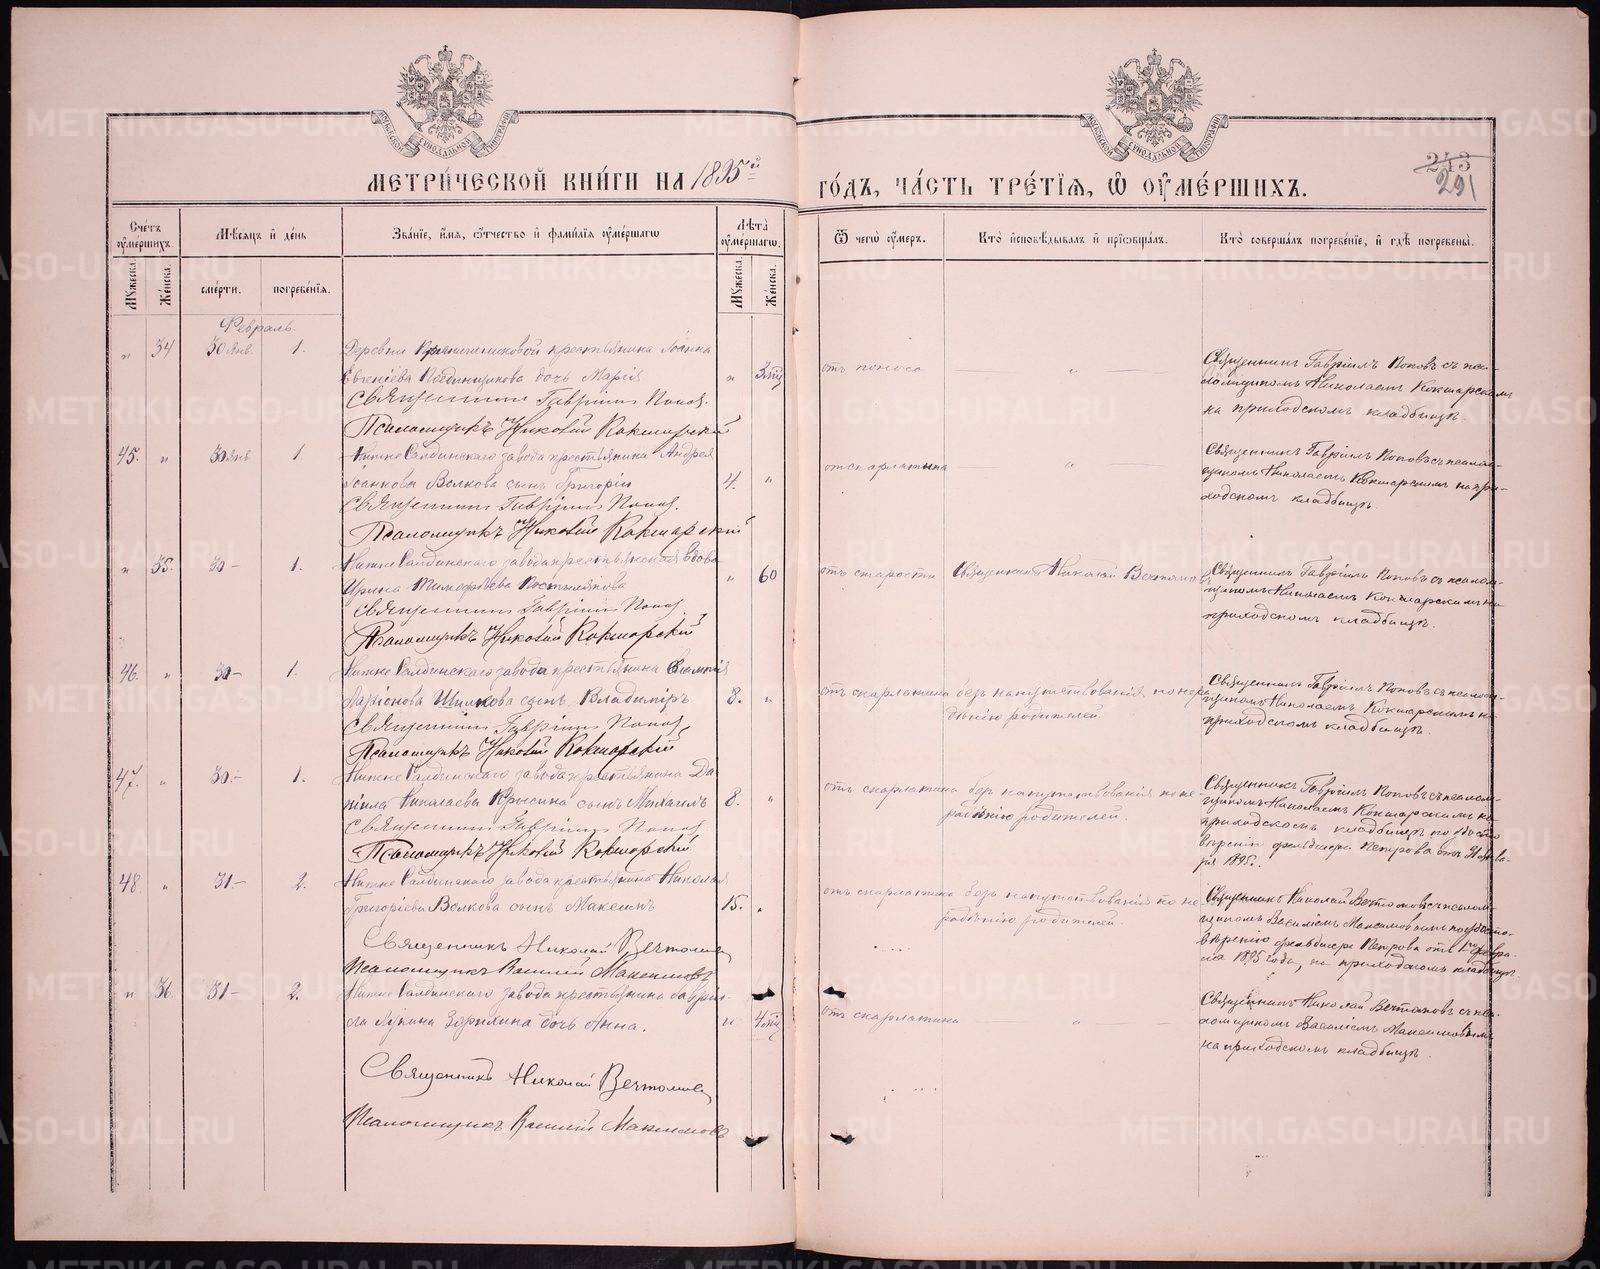 МЕТРИЧЕСКОЙ КНИГИ НА 1895й ГОДЪ, ЧАСТЬ ТРЕТІЯ, Ѽ ОУМЕРШИХЪ.
243
291
Счетъ оумершихъ.
Мѣсяцъ и день
Званіе, имя, отчество и фамилія оумершаго
Лѣта оумершаго.
Ѿ чего оумеръ.
Кто исповѣдывалъ и пріобщалъ.
Кто совершалъ погребеніе, и гдѣ погребены.
Мужеска.
Женска.
смерти.
погребенія.
Мужеска.
Женска.
Февраль
" 34 30 янв. 1.
Деревни крестьянина Іоанна
Евгеніева дочь Марія " 3 мѣс
отъ поноса "
Священникъ Гавріилъ Поповъ съ пса-
ломщикомъ Николаемъ Кокшарскимъ
на приходскомъ кладбищѣ.
Священникъ Гавріилъ Поповъ.
Псаломщикъ Николай Кокшарскій
45. " 30 янв 1.
Нижне Салдинскаго завода крестьянина Андрея
Іоаннова Волкова сынъ Григорій 4. "
отъ скарлатина "
Священникъ Гавріилъ Поповъ съ псалом-
щикомъ Николаемъ Кокшарскимъ на при-
ходскомъ кладбищѣ.
Священникъ Гавріилъ Поповъ.
Псаломщикъ Николай Кокшарскій
" 35. 30 - 1.
Нижне Салдинскаго завода крестьянская вдова
Ирина Тимофѣева " 60
отъ старости
Священникъ Николай Вечтомовъ
Священникъ Гавріилъ Поповъ съ псалом-
щикомъ Николаемъ Кокшарскимъ на
приходскомъ кладбищѣ.
Священникъ Гавріилъ Поповъ.
Псаломщикъ Николай Кокшарскій
46. " 30 - 1.
Нижне Салдинскаго завода крестьянина
Ларіонова сынъ Владиміръ 8. "
отъ скарлатина
безъ напутствованія по нера-
дѣнію родителей.
Священникъ Гавріилъ Поповъ съ псалом-
щикомъ Николаемъ Кокшарскимъ на
приходскомъ кладбищѣ.
Священникъ Гавріилъ Поповъ
Псаломщикъ Николай Кокшарскій
47. " 30. - 1.
Нижне Салдинскаго завода крестьянина Да-
ніила Николаева Крысина сынъ Михаилъ 8. "
отъ скарлатина
безъ напутствованія по не-
радѣнію родителей.
Священникъ Гавріилъ Поповъ съ псалом-
щикомъ Николаемъ Кокшарскимъ на
приходскомъ кладбищѣ по удосто
вѣренію фельдшера Петрова отъ Янва-
ря 1895.
Священникъ Гавріилъ Поповъ
Псаломщикъ Николай Кокшарскій
48. " 31 - 2.
Нижне Салдинскаго завода крестьянина Николая
Григоріева Волкова сынъ Максимъ 15. "
отъ скарлатина
безъ напутствованія по не
радѣнію родителей.
Священникъ Николай Вечтомовъ съ псалом-
щикомъ Василіемъ Максимовымъ по удосто-
вѣренію фельдшера Петрова отъ 1го Февра-
ля 1895 года, на приходскомъ кладбищѣ.
Священникъ Николай Вечтомовъ
Псаломщикъ Василій Максимовъ
" 36 31 - 2.
Нижне Салдинскаго завода крестьянина Гавріи-
ла Зорихина дочь Анна. " 4 мѣс
отъ скарлатина "
Священникъ Николай Вечтомовъ съ пса-
ломщикомъ Василіемъ Максимовымъ
на приходскомъ кладбищѣ.
Священникъ Николай Вечтомовъ
Псаломщикъ Василій Максимовъ
METRIKI.GASO-URAL.RU